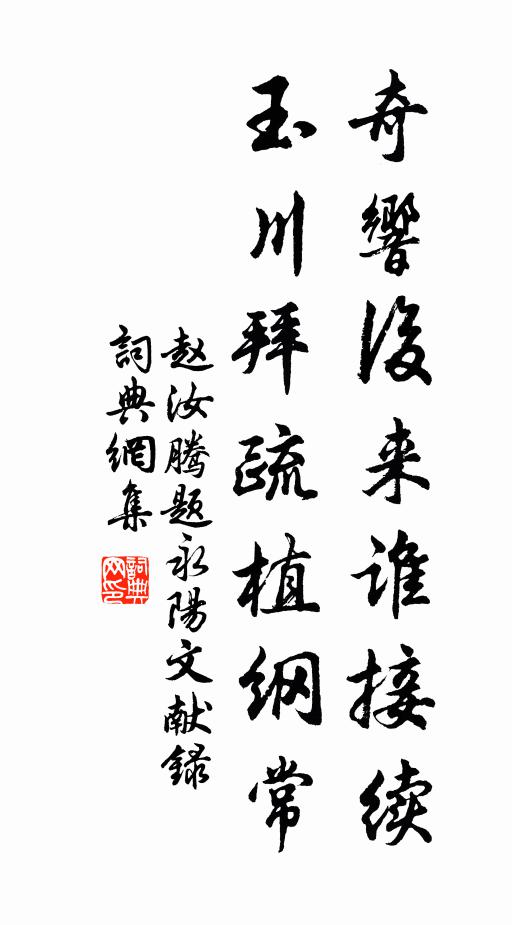 奇響後来谁接续
玉川拜疏植纲常
赵汝腾题永陽文献録
詞典網集
詞典网印